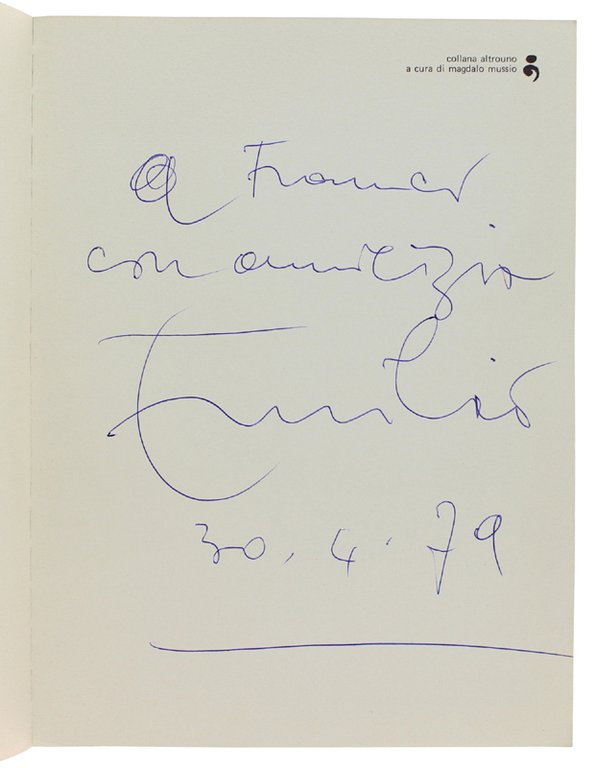 collana altrouno
a cura di magdalo mussio
A Franco
con amicizia
Emilio
30.4.79